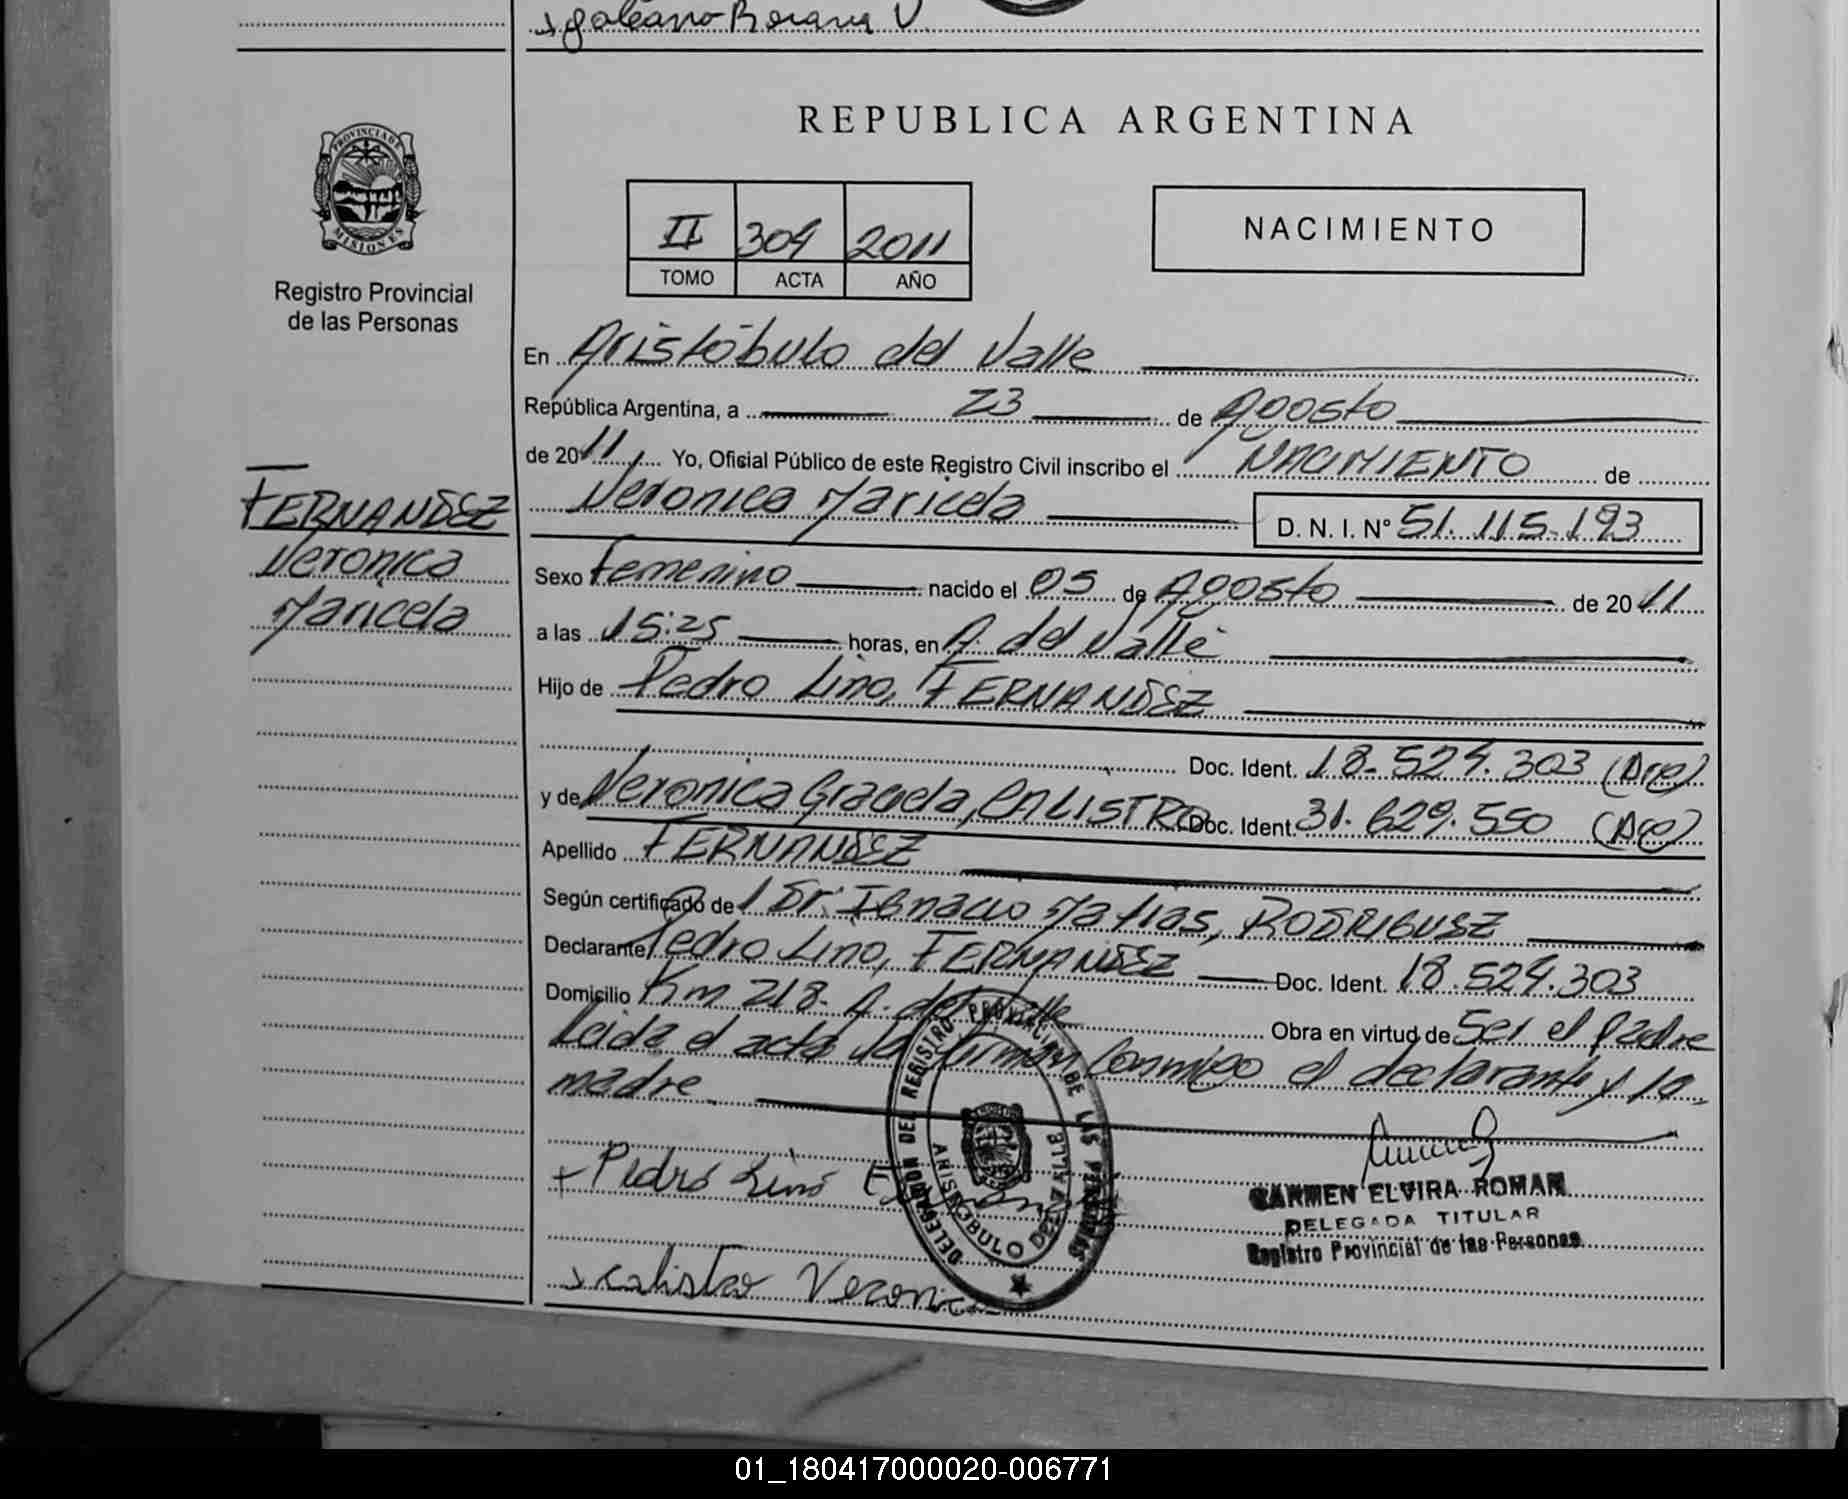 galeano Rosana V
REPUBLICA ARGENTINA
PROVINCIA DE
MISIONES
Registro Provincial
de las Personas
II 304 2011
TOMO ACTA AÑO
NACIMIENTO
En Aristóbulo del Valle
República Argentina, a 23 de Agosto
de 2011 Yo, Oficial Público de este Registro Civil inscribo el NACIMIENTO de
Veronica Maricela D. N. I. Nº 51.115.193
FERNANDEZ
Veronica
Maricela
Sexo Femenino nacido el 05 de Agosto de 2011
a las 15:25 horas, en A. del Valle
Hijo de Pedro Lino, FERNANDEZ
Doc. Ident. 18.524.303 (Arg)
y de Veronica Graciela, CALISTRO Doc. Ident. 31.629.550 (Arg)
Apellido FERNANDEZ
Según certificado de l Dr. Ignacio Matias, RODRIGUEZ
Declarante Pedro Lino, FERNANDEZ Doc. Ident. 18.524.303
Domicilio Km 218. A. del Valle Obra en virtud de Ser el padre
Leida el acta la firman conmigo el declarante y la
madre
DELEGACION DEL REGISTRO PROVINCIAL DE LAS PERSONAS
ARISTOBULO DEL VALLE
Pedro Lino
CARMEN ELVIRA ROMAN
DELEGADA TITULAR
Registro Provincial de las Personas
Calistro Veronica
01_180417000020-006771